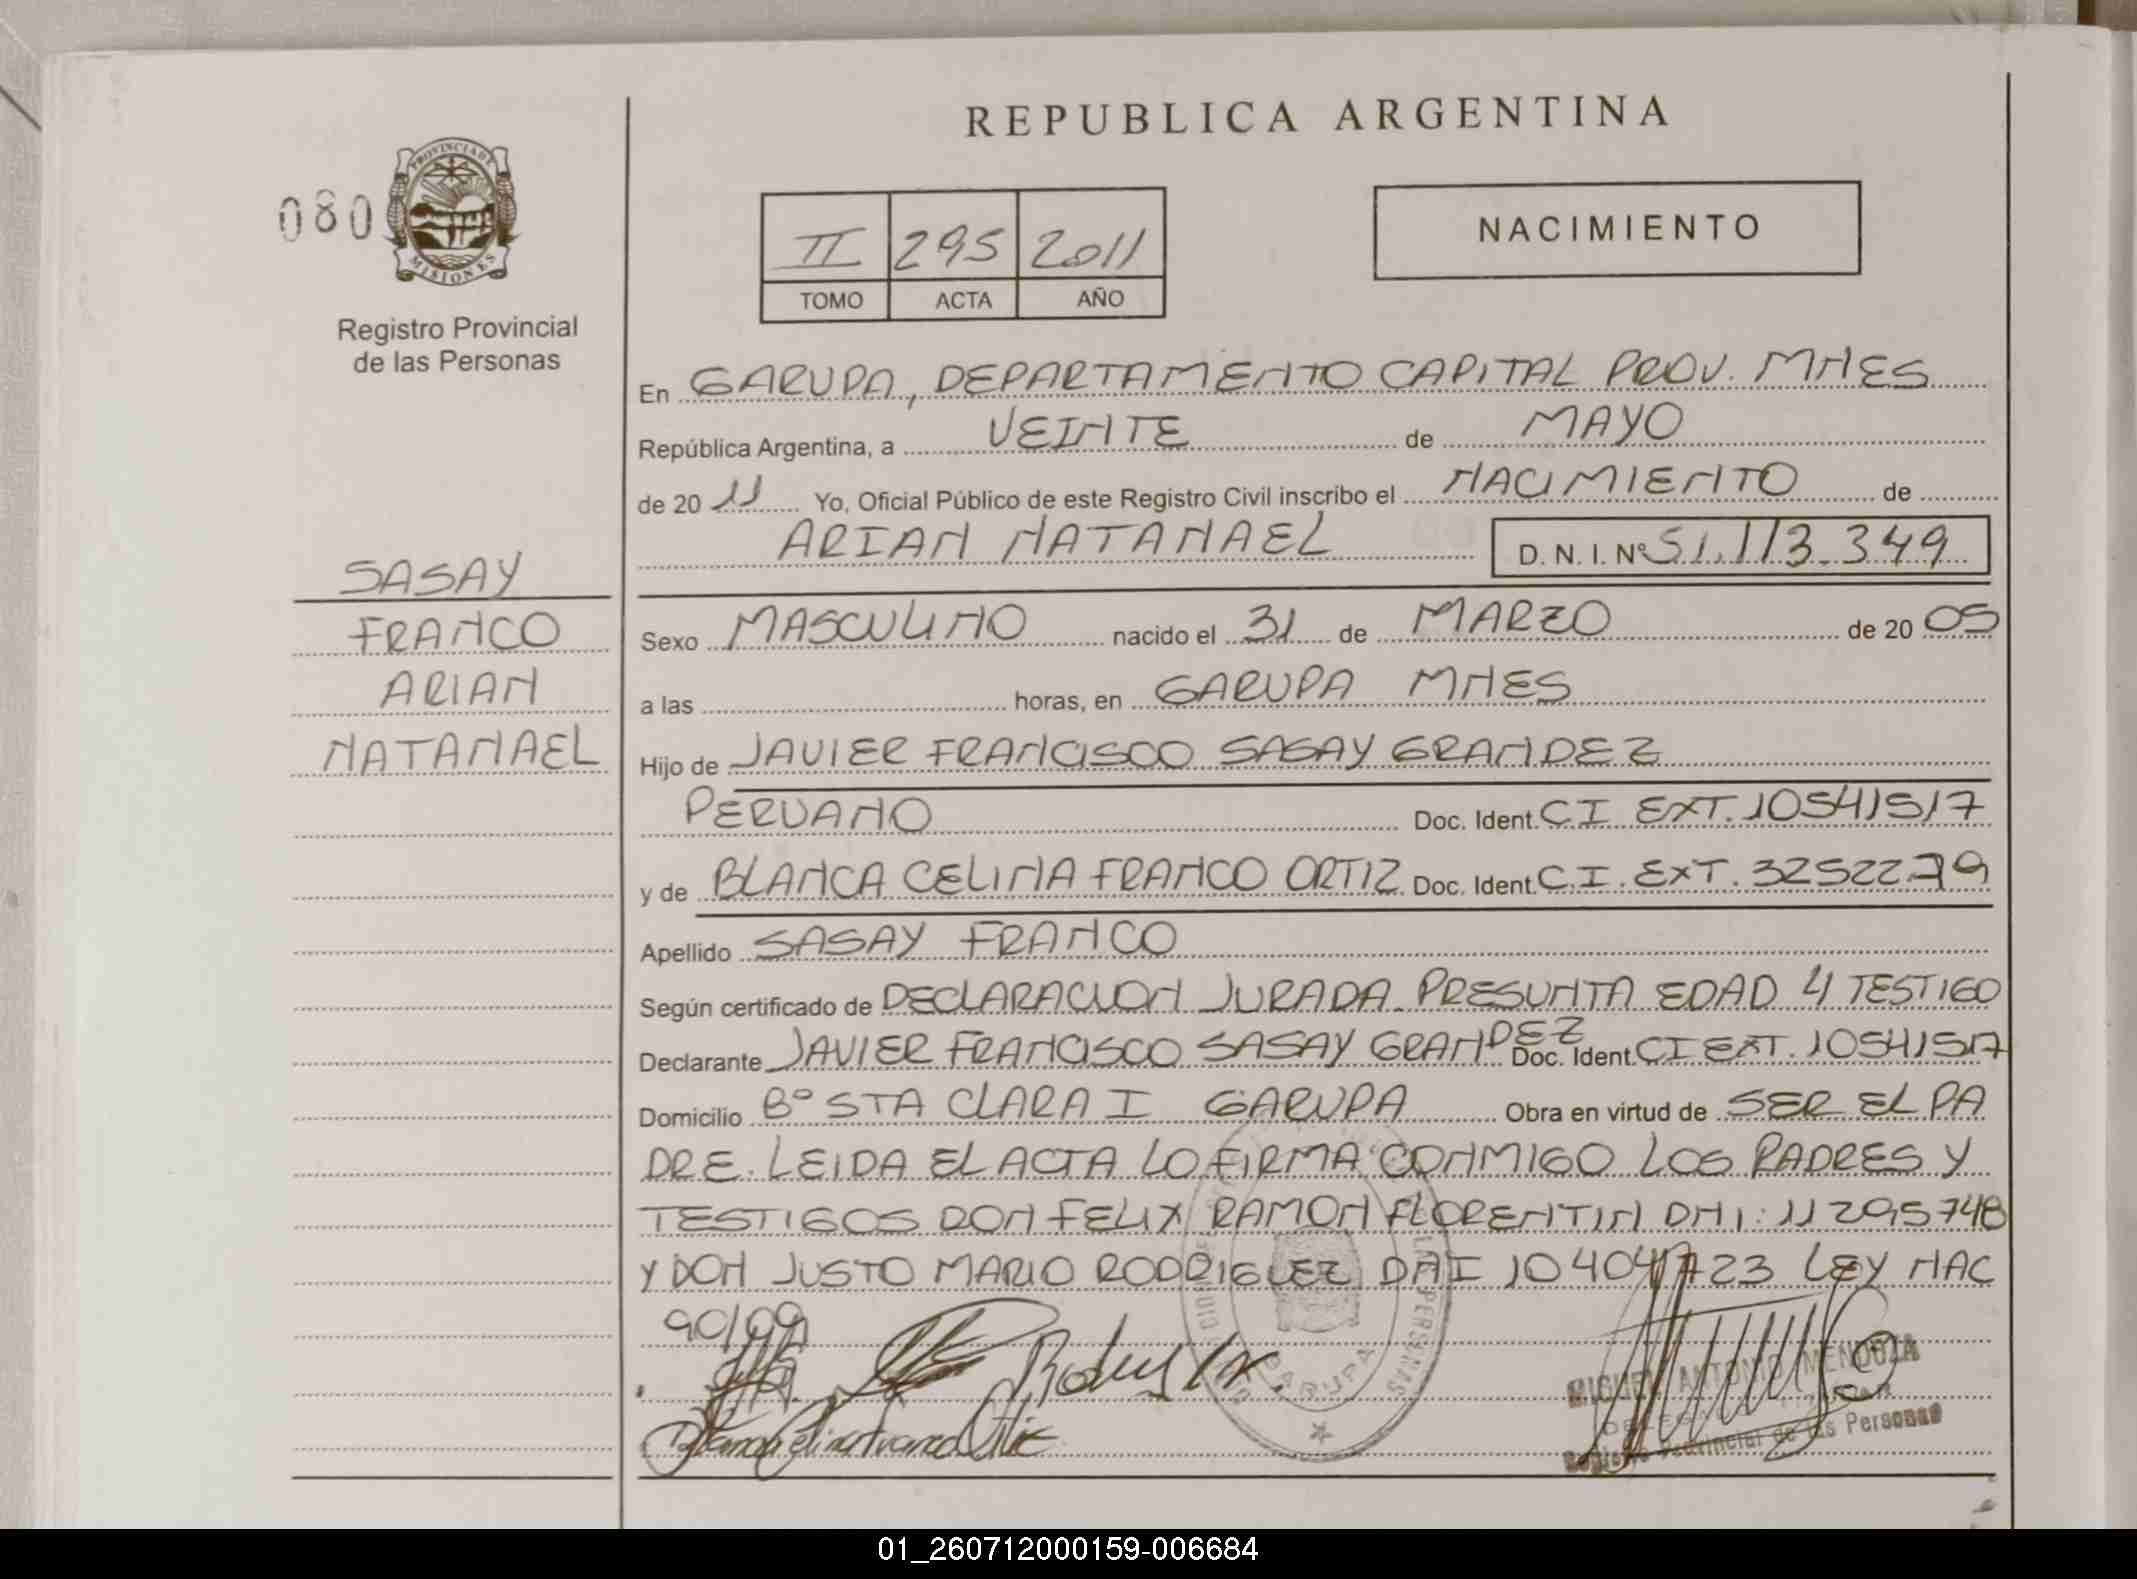 REPUBLICA ARGENTINA
080
PROVINCIA DE
MISIONES
Registro Provincial
de las Personas
II 295 2011
TOMO ACTA AÑO
NACIMIENTO
En GARUPA, DEPARTAMENTO CAPITAL PROV. MNES
República Argentina, a VEINTE de MAYO
de 20 11 Yo, Oficial Público de este Registro Civil inscribo el NACIMIENTO de
ARIAN NATANAEL D. N. I. Nº 51.113.349
SASAY
FRANCO
ARIAN
NATANAEL
Sexo MASCULINO nacido el 31 de MARZO de 20 05
a las horas, en GARUPA MNES
Hijo de JAVIER FRANCISCO SASAY GRANDEZ
PERUANO Doc. Ident. CI EXT. 10541517
y de BLANCA CELINA FRANCO ORTIZ Doc. Ident. C.I. EXT. 3252279
Apellido SASAY FRANCO
Según certificado de DECLARACION JURADA PRESUNTA EDAD Y TESTIGO
Declarante JAVIER FRANCISCO SASAY GRANDEZ Doc. Ident. CI EXT. 10541517
Domicilio Bº STA CLARA I GARUPA Obra en virtud de SER EL PA
DRE. LEIDA EL ACTA LO FIRMA CONMIGO LOS PADRES Y
TESTIGOS DON FELIX RAMON FLORENTIN DNI: 11295748
Y DON JUSTO MARIO RODRIGUEZ DNI 10404723 LEY NAC
90/09
GARUPA
MIGUEL ANTONIO MENDOZA
Registro Provincial de las Personas
01_260712000159-006684